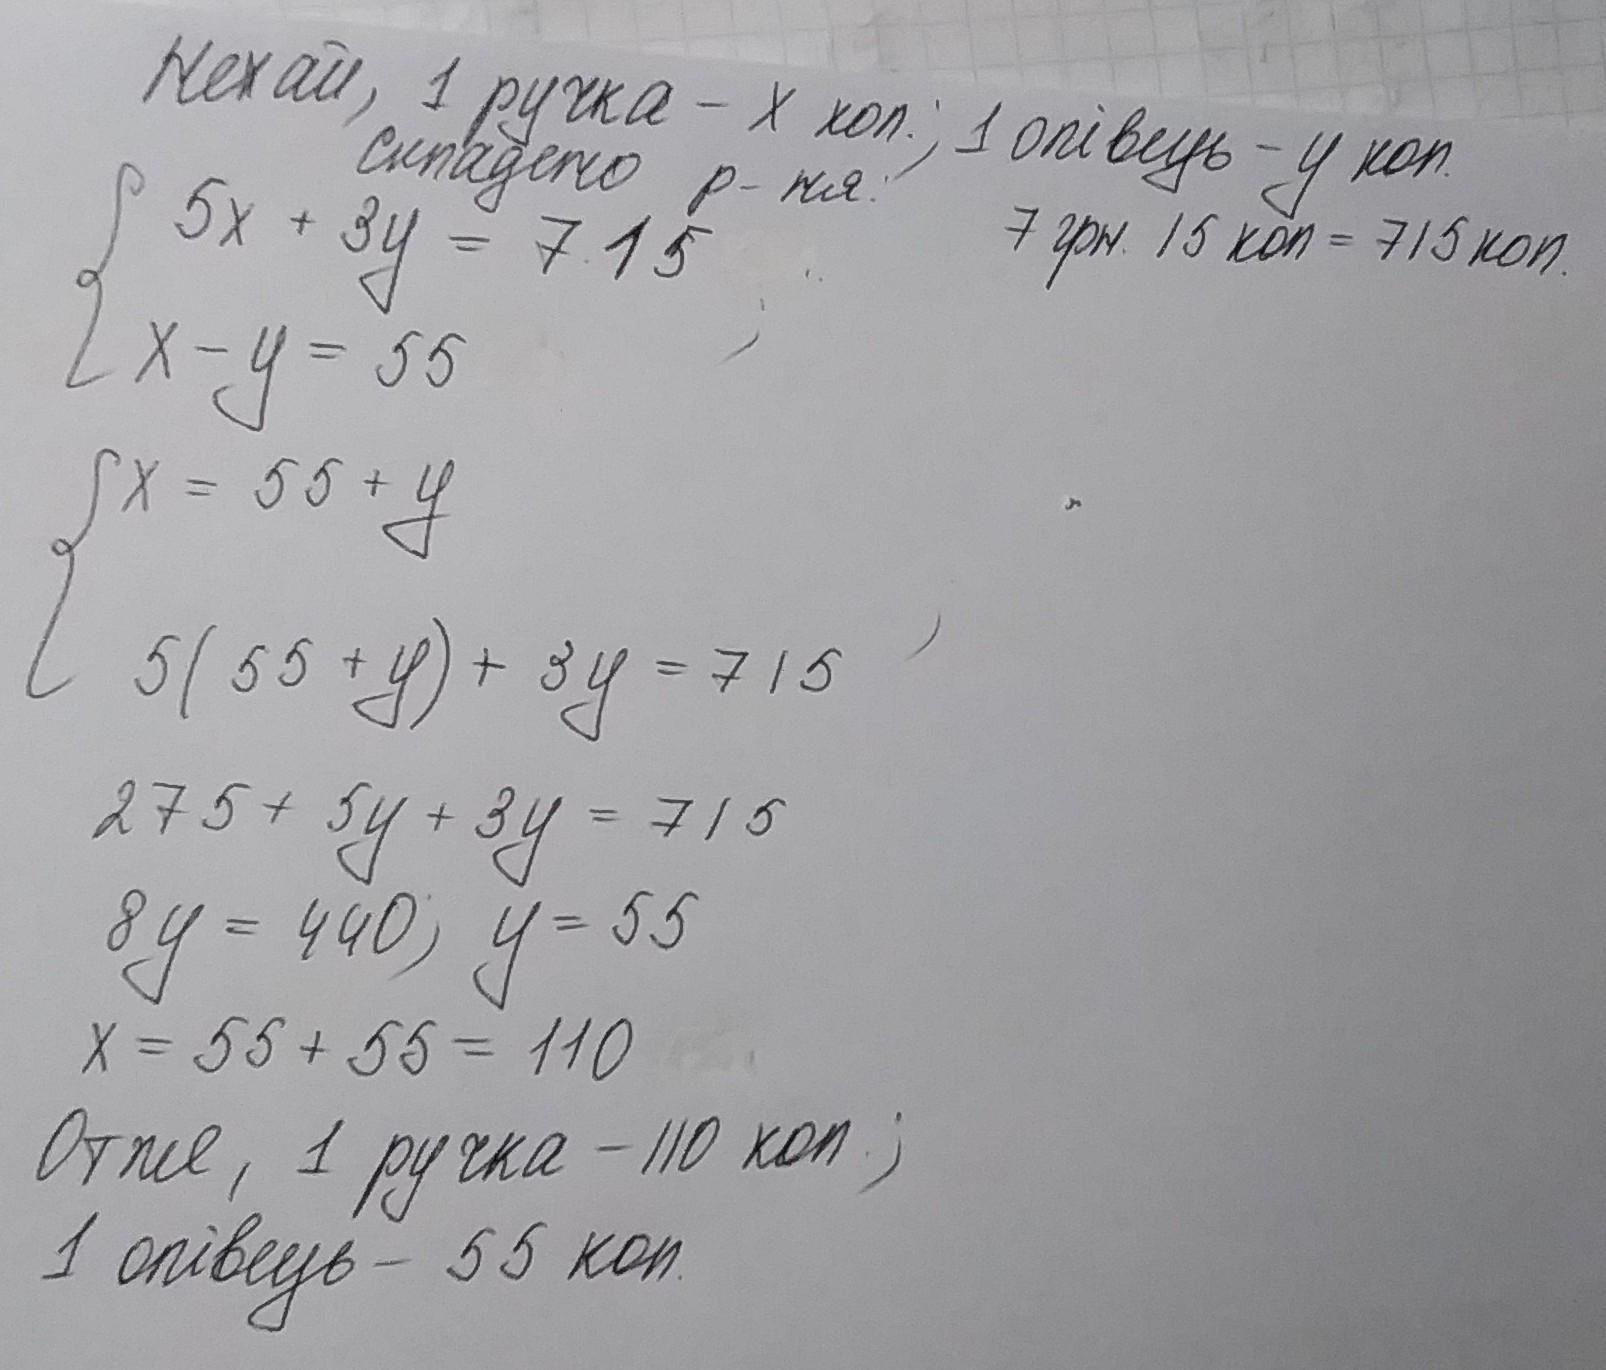 Нехай, 1 ручка - x коп.; 1 олівець - y коп.
Складемо р-ня:
5x + 3y = 715
7 грн. 15 коп = 715 коп.
x - y = 55 ;
x = 55 + y
5(55 + y) + 3y = 715 ,
275 + 5y + 3y = 715
8y = 440; y = 55
x = 55 + 55 = 110
Отже, 1 ручка - 110 коп.;
1 олівець - 55 коп.